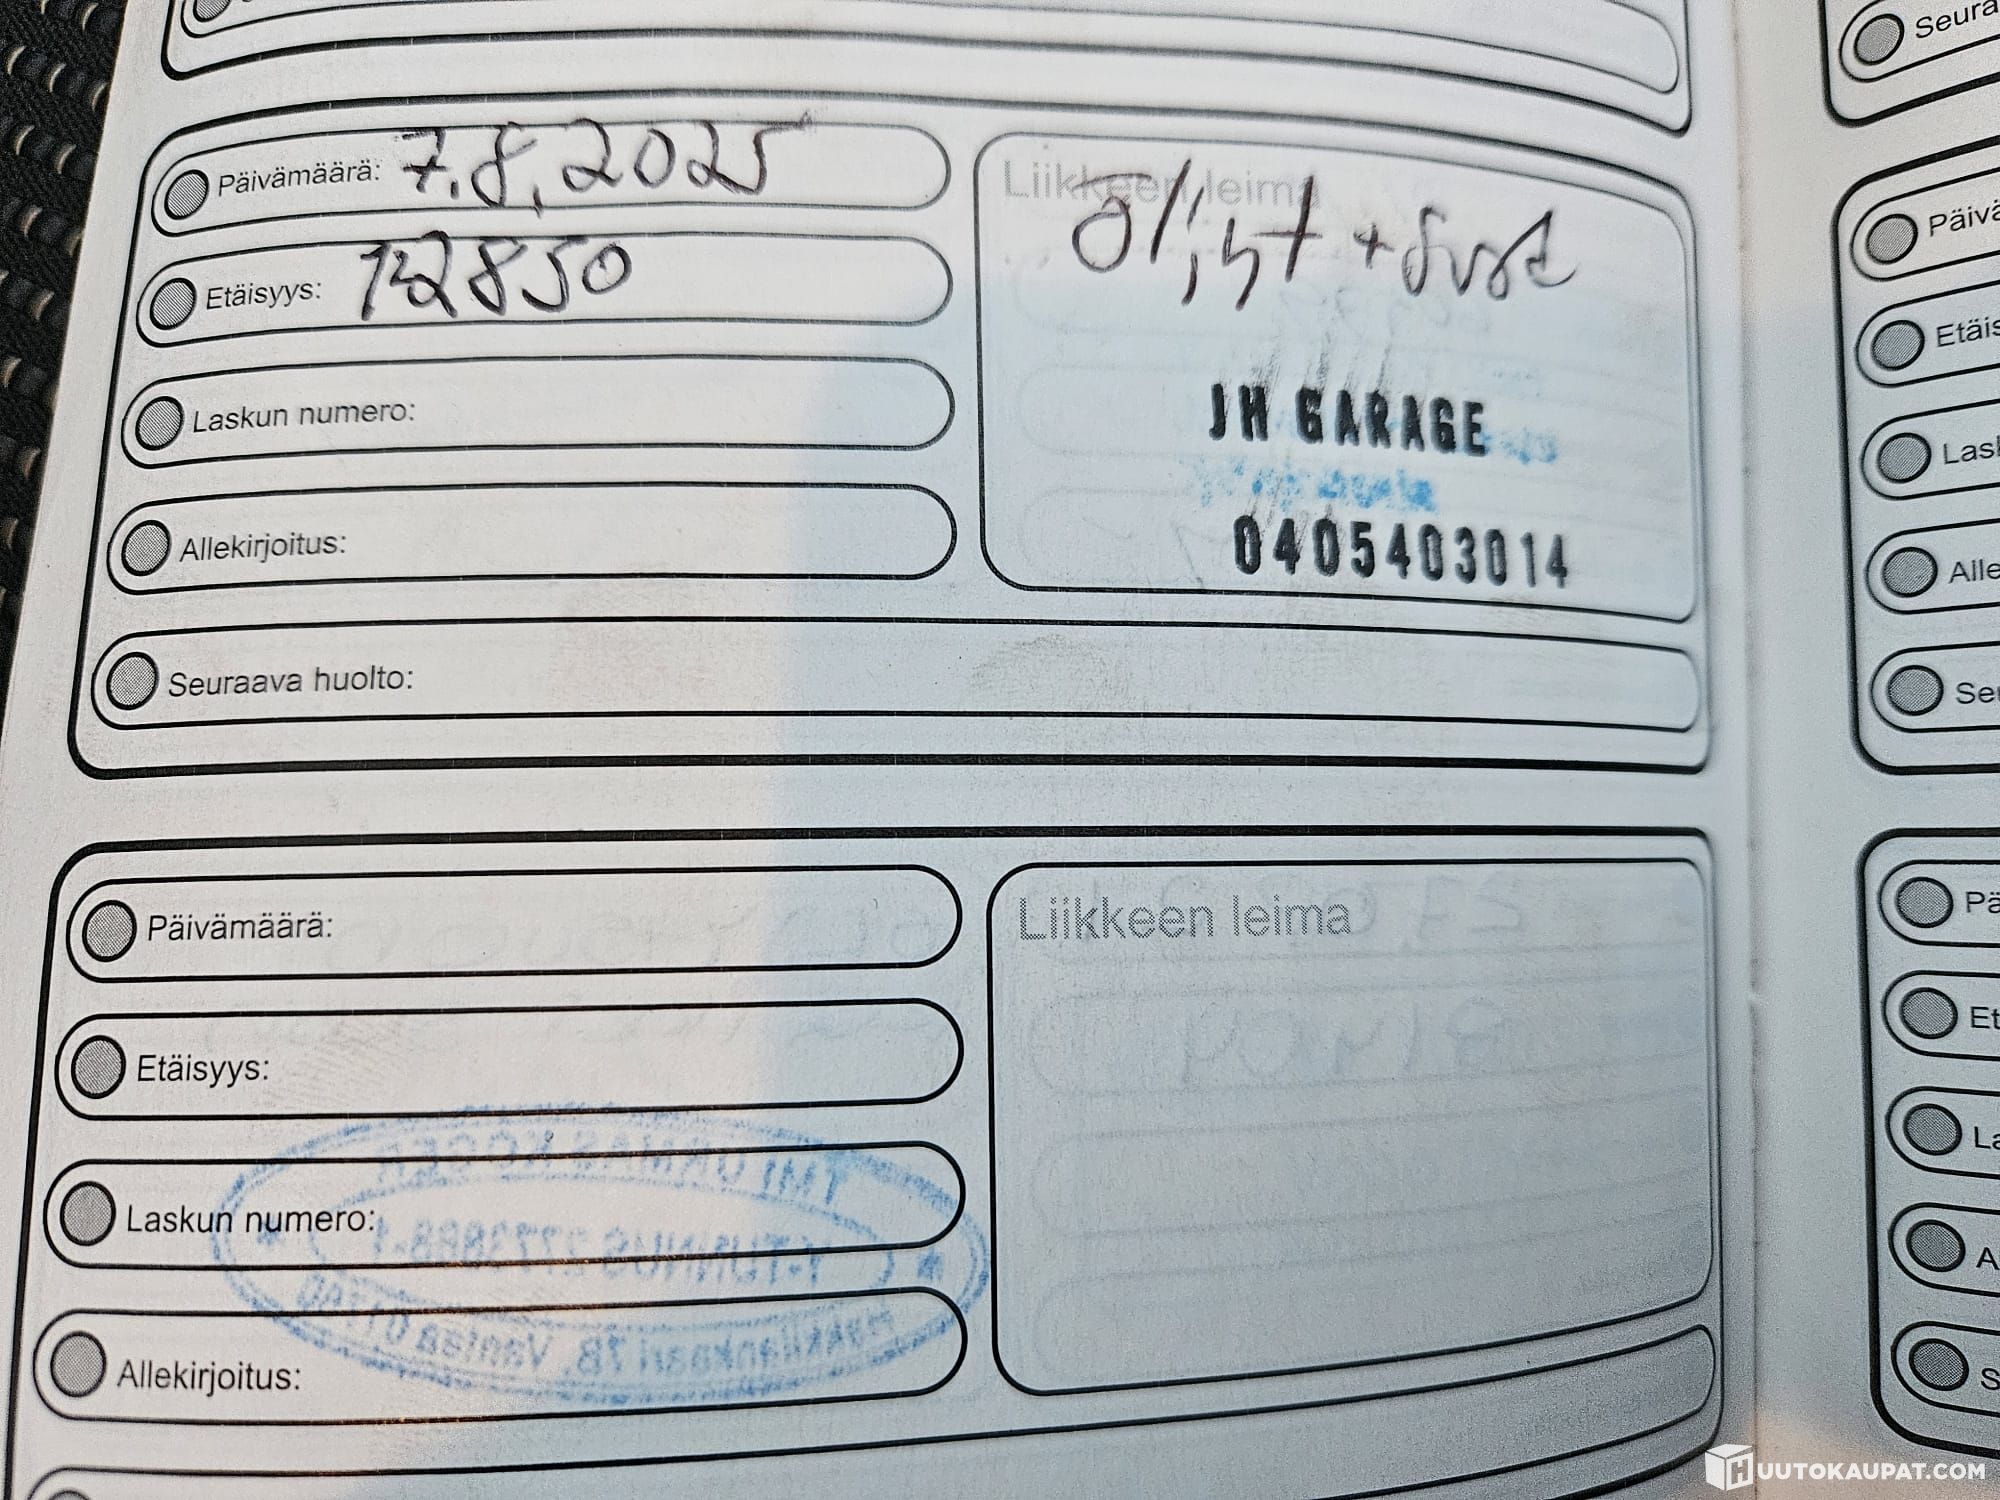 Päivämäärä: 7.8.2025
Etäisyys: 132850
Laskun numero:
Allekirjoitus:
Seuraava huolto:
Liikkeen leima
Öljyt +
JH GARAGE
0405403014
Päivämäärä:
Etäisyys:
Laskun numero:
Allekirjoitus:
Liikkeen leima
TMI URMAS KOGER
Y-TUNNUS 2773888-1
Vantaa
Seura
Päivä
Etäis
Lask
Alle
Se
Pä
Et
La
A
S
HUUTOKAUPAT.COM